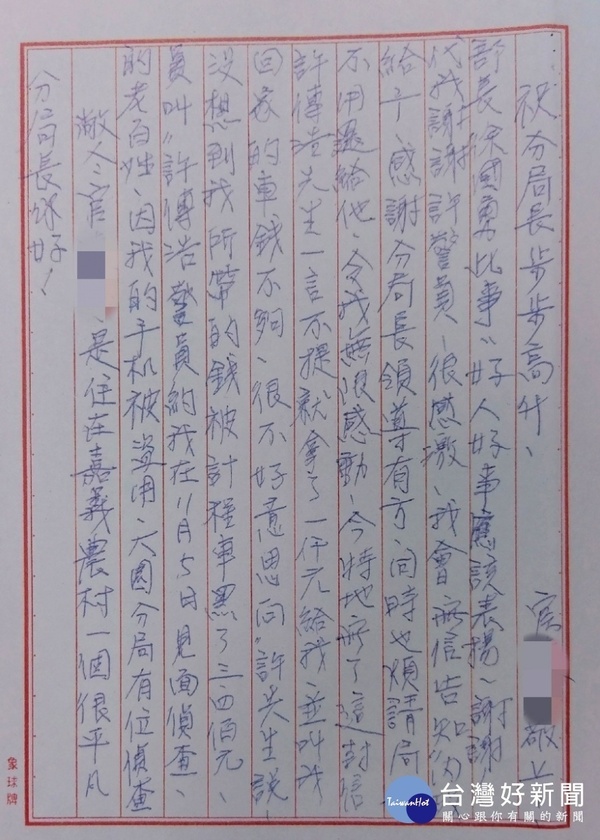 分局長你好！
敝人、官 、是住在嘉義農村一個很平凡
的老百姓、因我的手机被盜用、大園分局有位偵查
員叫〝許博浩警員約我在11月5日見面偵查、
沒想到我所帶的錢被計程車黑了三四佰元、
回家的車錢不夠、很不好意思向〝許先生說、
許博浩先生一言不提就拿了一仟元給我、並叫我
不用還給他、令我無限感動、今特地寫了這封信
給予、感謝分局長領導有方、同時也煩請局
代我謝謝許警員、很感激、我會寫信告知內政
部長徐國勇此事〃好人好事應該表揚、謝謝
祝分局長步步高升、
官 敬上
象球牌
TaiwanHot
台灣好新聞
關心跟你有關的新聞